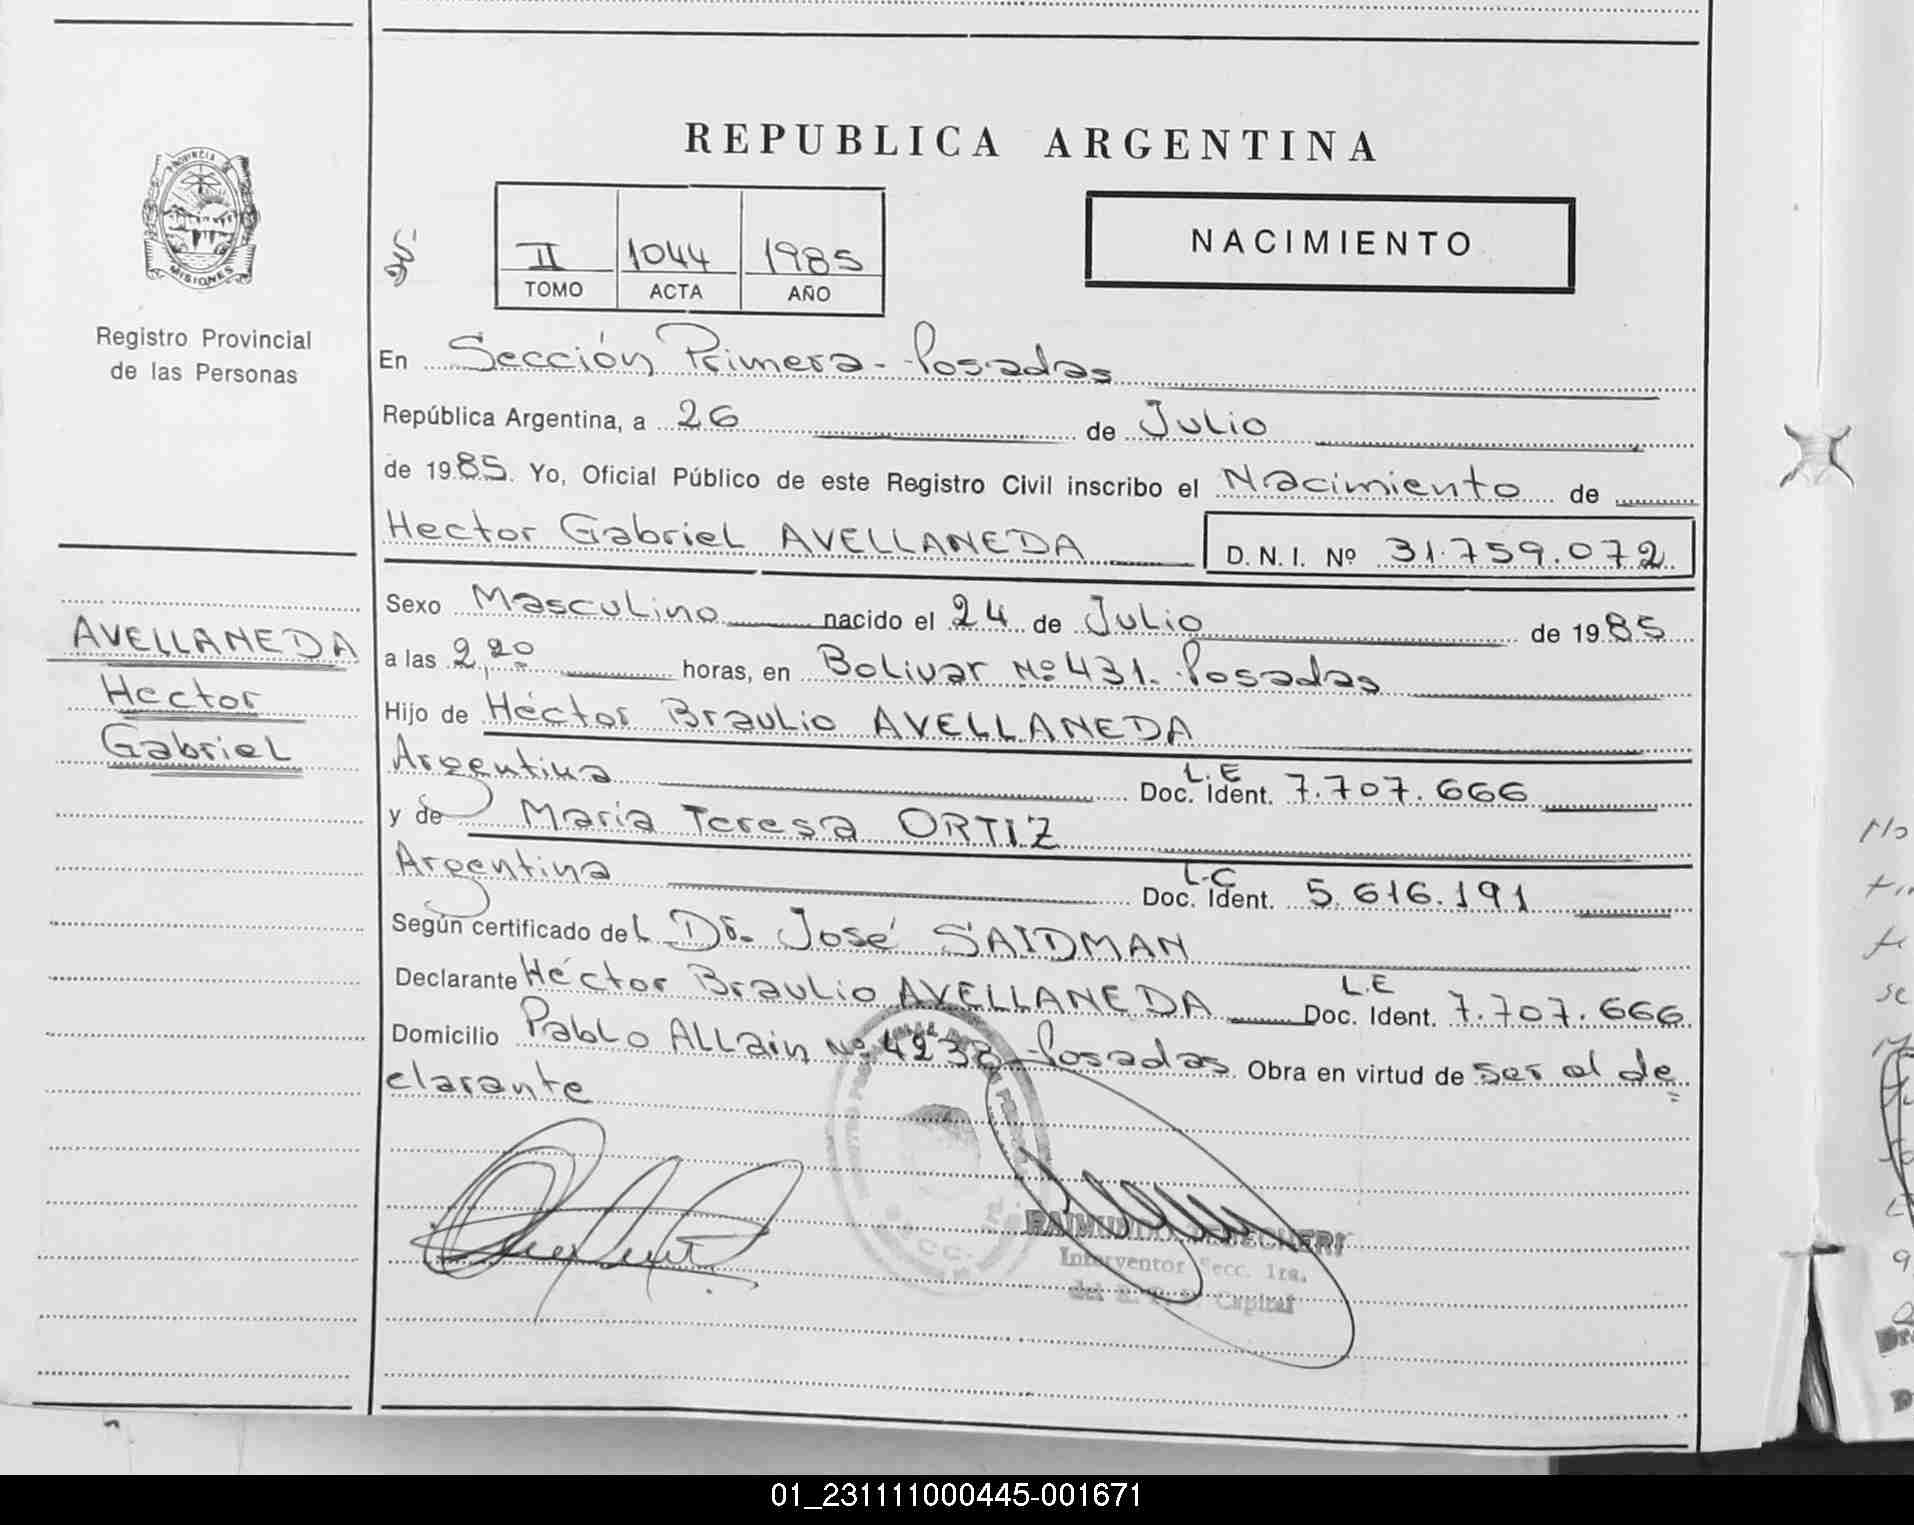 REPUBLICA ARGENTINA
PROVINCIA DE MISIONES
Registro Provincial
de las Personas
II 1044 1985
TOMO ACTA AÑO
NACIMIENTO
En Sección Primera - Posadas
República Argentina, a 26 de Julio
de 1985. Yo, Oficial Público de este Registro Civil inscribo el Nacimiento de
Hector Gabriel AVELLANEDA D. N. I. Nº 31.759.072
Sexo Masculino nacido el 24 de Julio de 1985
a las 2,20 horas, en Bolivar Nº 431. Posadas
Hijo de Héctor Braulio AVELLANEDA
Argentina Doc. Ident. L.E 7.707.666
y de María Teresa ORTIZ
Argentina Doc. Ident. L.C 5.616.191
Según certificado del Dr. José SAIDMAN
Declarante Héctor Braulio AVELLANEDA L.E Doc. Ident. 7.707.666
Domicilio Pablo Allain Nº 4233 - Posadas. Obra en virtud de ser el de
clarante
AVELLANEDA
Hector
Gabriel
RAIMUNDO
Interventor Secc. 1ra.
del Capital
01_231111000445-001671